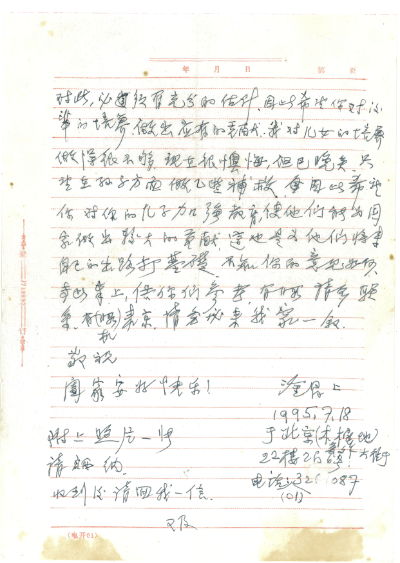 年 月 日 第 页
对此,必须有充分的估计,因此希望你对后
辈的培养,做出应有的贡献。我对儿女的培养
做得很不够,现在很懊悔,但已晚矣,只
在孙子方面做些补救,因此希望
你对你的儿子加强教育,使他们能为国
家做出较大的贡献,这也是为他们将来
自己的出路打基础。不知你的意见如何,
奉上,供你们参考,有暇请多联
系,有机来京,请全家来我家一叙.
敬祝
阖家安好快乐!
上
1995.7.18
附上照片一张 于北京(木樨地)
请哂纳. 22楼 大街
收到后请回我一信. 电话:
(01)
又及
(电开01)